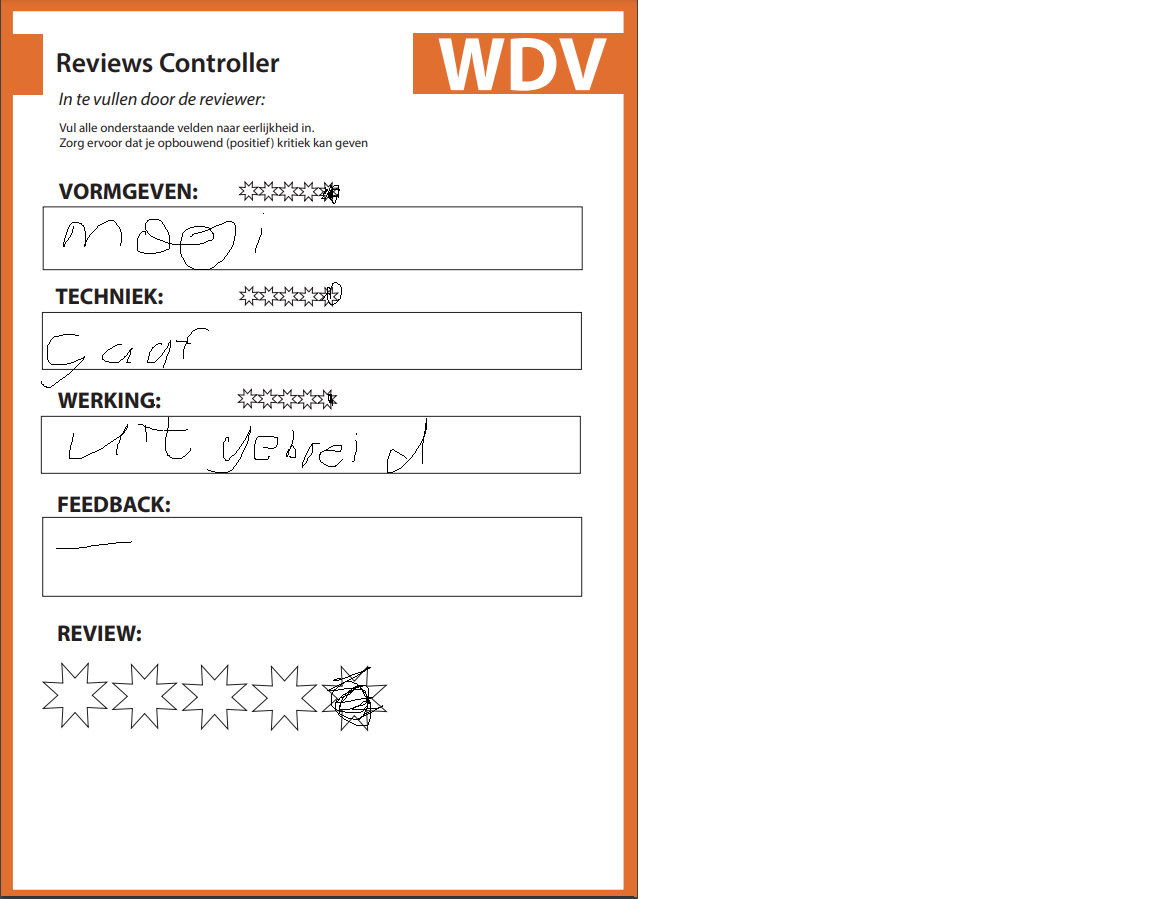 Reviews Controller
WDV
In te vullen door de reviewer:
Vul alle onderstaande velden naar eerlijkheid in.
Zorg ervoor dat je opbouwend (positief) kritiek kan geven
VORMGEVEN:
mooi
TECHNIEK:
Gaaf
WERKING:
Uitgebreid
FEEDBACK:
—
REVIEW: